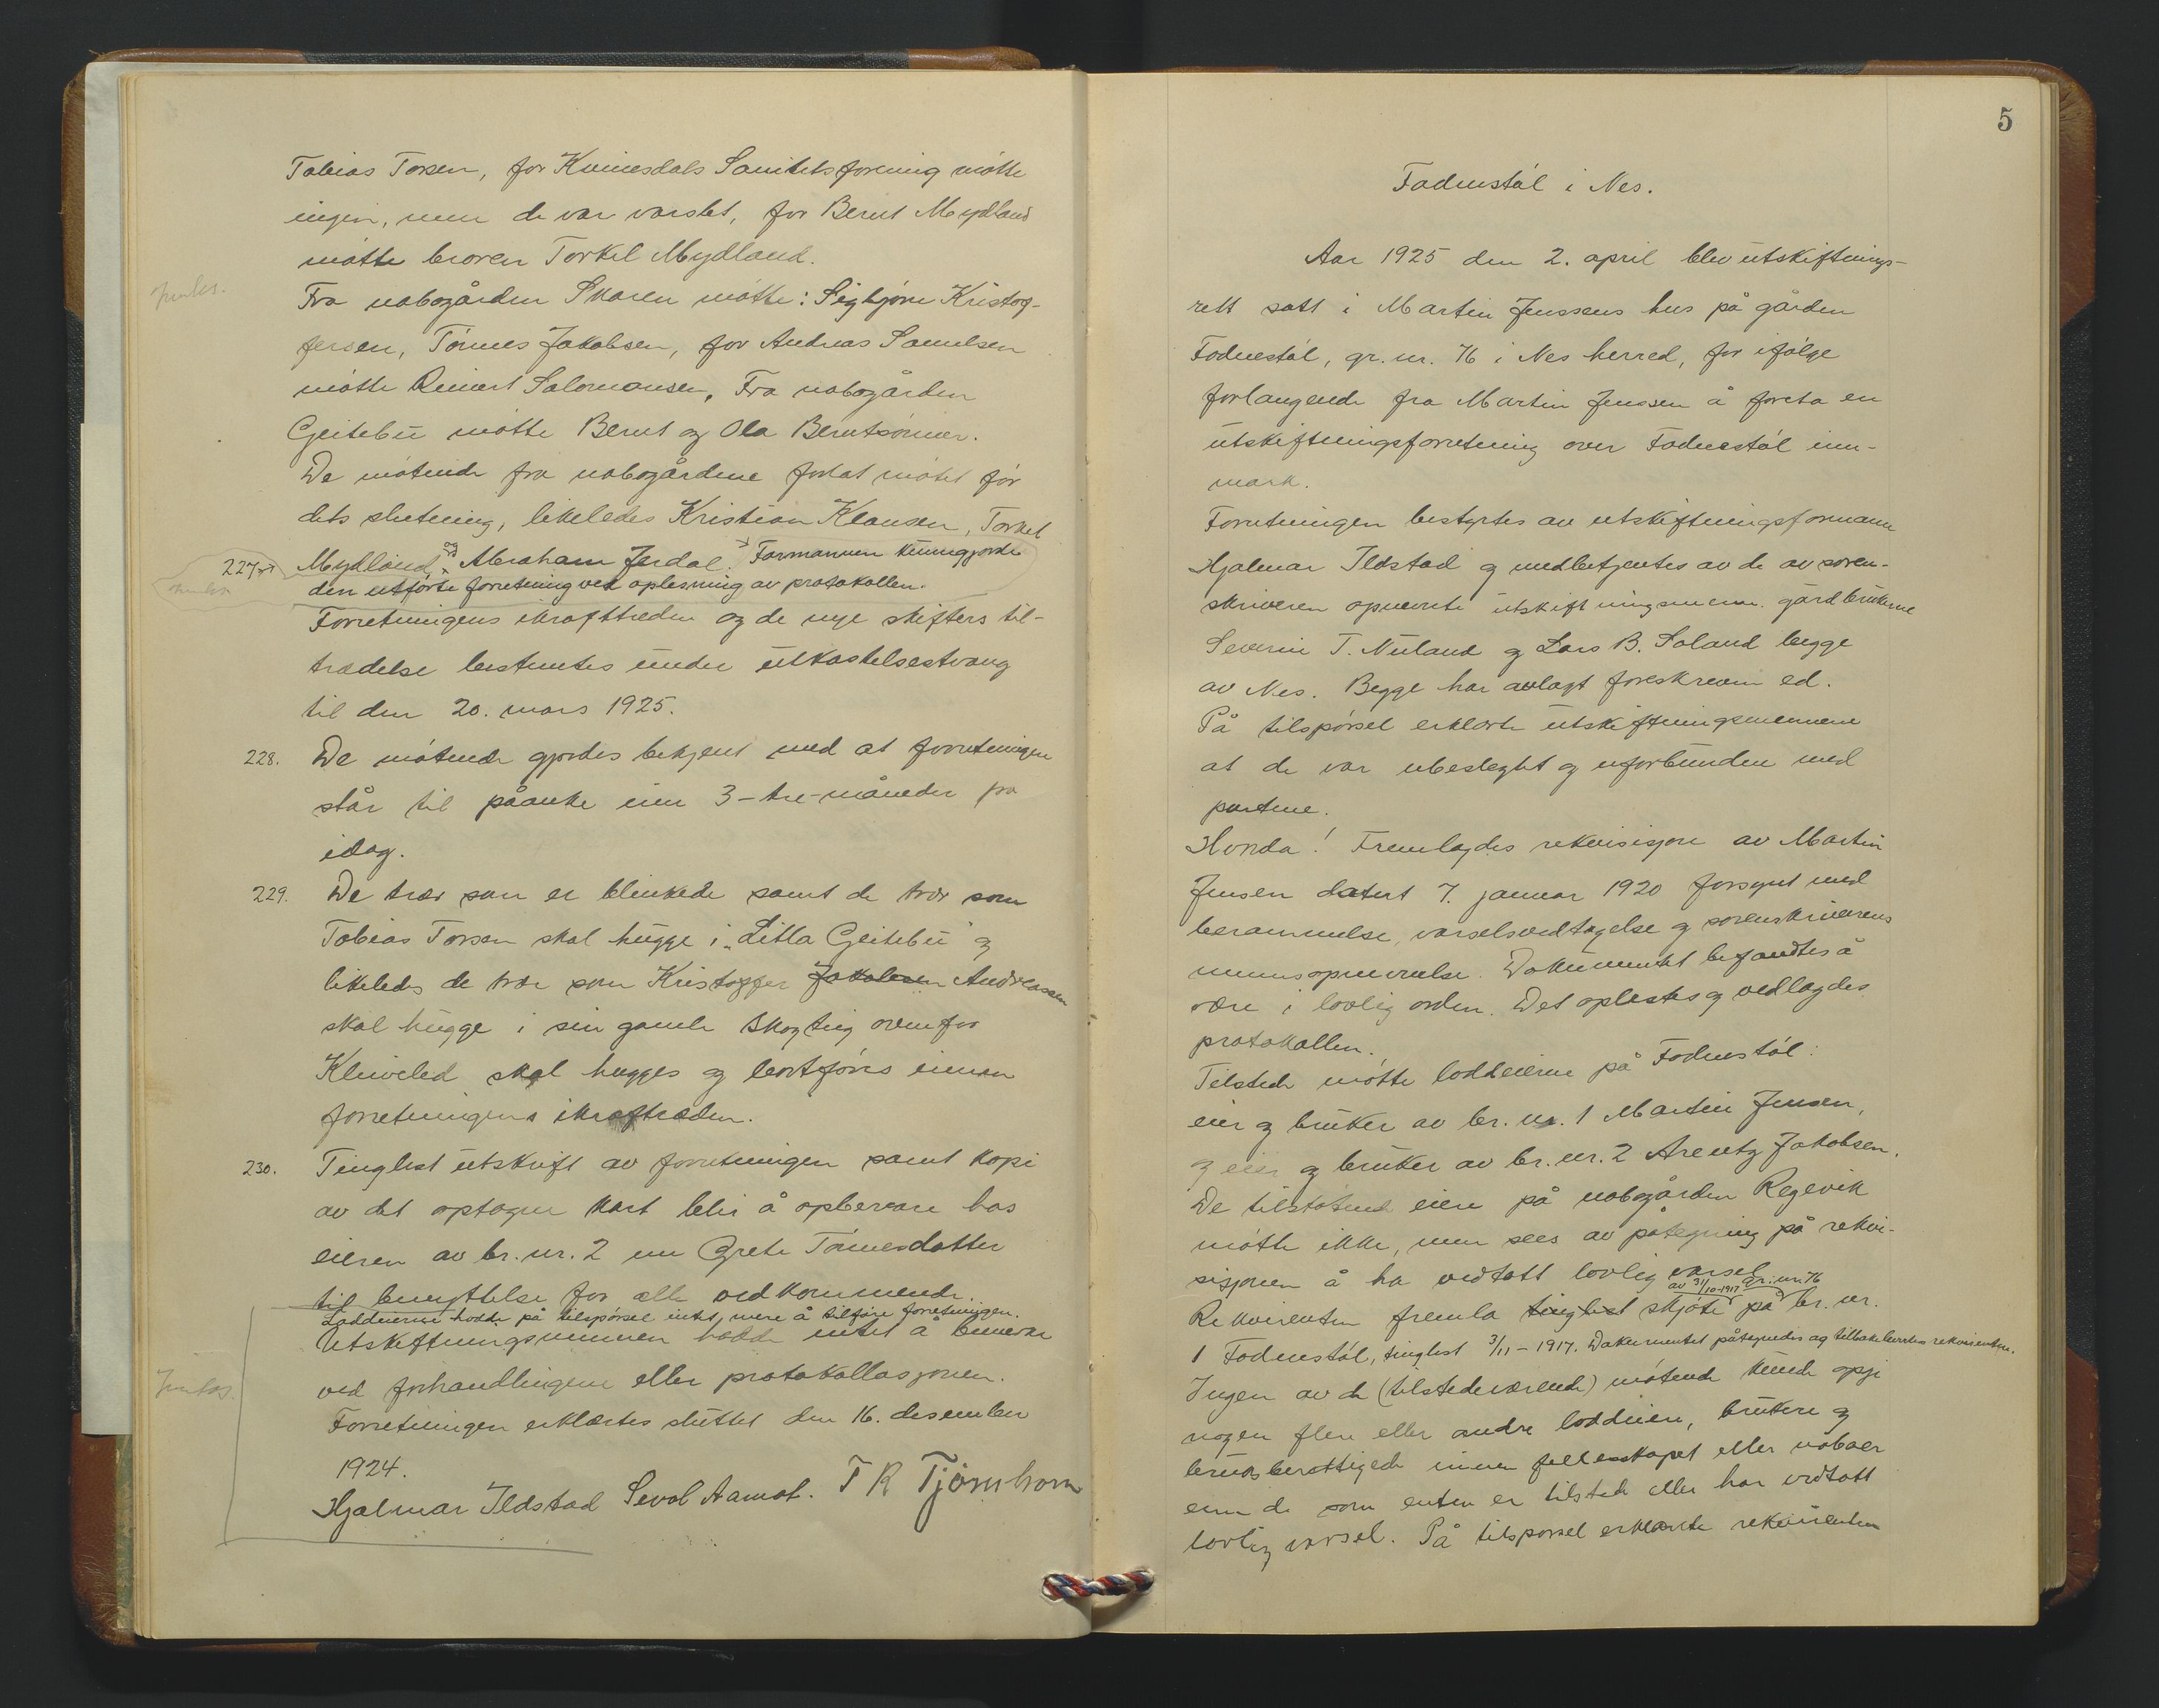 Tobias Torsen, for Kvinesdals Sanitetsforening møtte
ingen, men de var varslet, for Bernt Mydland
møtte broren Torkel Mydland.
Fra nabogården Skaren møtte: Sigbjørn Kristof-
fersen, Tønnes Jakobsen, for Andreas Samelsen
møtte Reinert Salomonsen. Fra nabogården
Geitebu møtte Bernt og Ola Berntsønner.
De møtende fra nabogårdene forlot møtet før
dets slutning, likeledes Kristian Klausen, Torkel
227. Mydland og Abraham Jerdal. Formannen kunngjorde
den utførte forretning ved oplesning av protokollen.
Forretningens ikrafttræden og de nye skifters til-
trædelse bestemtes under utkastelsestvang
til den 20. mars 1925.
228. De møtende gjordes bekjent med at forretningen
står til påanke inn 3-tre-måneder fra
idag.
229. De trær som er blinkede samt de trær som
Tobias Torsen skal hugge i „Litla Geitebu" og
likeledes de trær som Kristoffer Jakobsen Andreassen
skal hugge i sin gamle skogteig ovenfor
Kleiveled skal hugges og bortføres innen
forretningens ikrafttræden.
230. Tinglest utskrift av forretningen samt kopi
av det optagne kart blir å opbevare hos
eieren av br. nr. 2 nu Grete Tønnesdatter
til benyttelse for alle vedkommende.
Loddeierne hadde på tilspørsel intet mere å tilføre forretningen.
Utskiftningsmennen hadde intet å bemerke
ved forhandlingene eller protokollasjonen.
Forretningen erklærtes sluttet den 16. desember
1924.
Hjalmar Ildstad Sevol Aamot. T R Tjørnhom
5
Fodnestøl i Nes.
Aar 1925 den 2. april blev utskiftnings-
rett satt i Martin Jenssens hus på gården
Fodnestøl, gr. nr. 76 i Nes herred, for ifølge
forlangende fra Martin Jenssen å foreta en
utskiftningsforretning over Fodnestøl inn-
mark.
Forretningen bestyrtes av utskiftningsformann
Hjalmar Ildstad og medbetjentes av de av soren-
skriveren opnevnte utskiftningsmenn gårdbrukerne
Severin T. Nuland og Lars B. Soland begge
av Nes. Begge har avlagt foreskreven ed.
På tilspørsel erklærte utskiftningsmennene
at de var ubeslegtet og uforbunden med
partene.
Hvorda! Fremlagdes rekvisisjon av Martin
Jensen datert 7. januar 1920 forsynt med
berammelse, varselsvedtagelse og sorenskriverens
mennsopnevnelse. Dokumentet befandtes å
være i lovlig orden. Det oplestes og vedlagdes
protokollen.
Tilstede møtte loddeierne på Fodnestøl:
eier og bruker av br. nr. 1 Martin Jensen,
og eier og bruker av br. nr. 2 Arentz Jakobsen.
De tilstøtende eiere på nabogården Regevik
møtte ikke, men sees av påtegning på rekvi-
sisjonen å ha vedtatt lovlig varsel.
av 31/10-1917 gr. nr. 76
Rekvirenten fremla tinglest skjøte på br. nr.
1 Fodnestøl, tinglest 3/11 - 1917. Dokumentet påtegnedes og tilbakeleverdes rekvirenten.
Ingen av de (tilstedeværende) møtende kunde opgi
nogen flere eller andre loddeiere, brukere og
bruksberettigede innen fellesskapet eller naboer
enn de som enten er tilstede eller har vedtatt
lovlig varsel. På tilspørsel erklærte rekvirenten